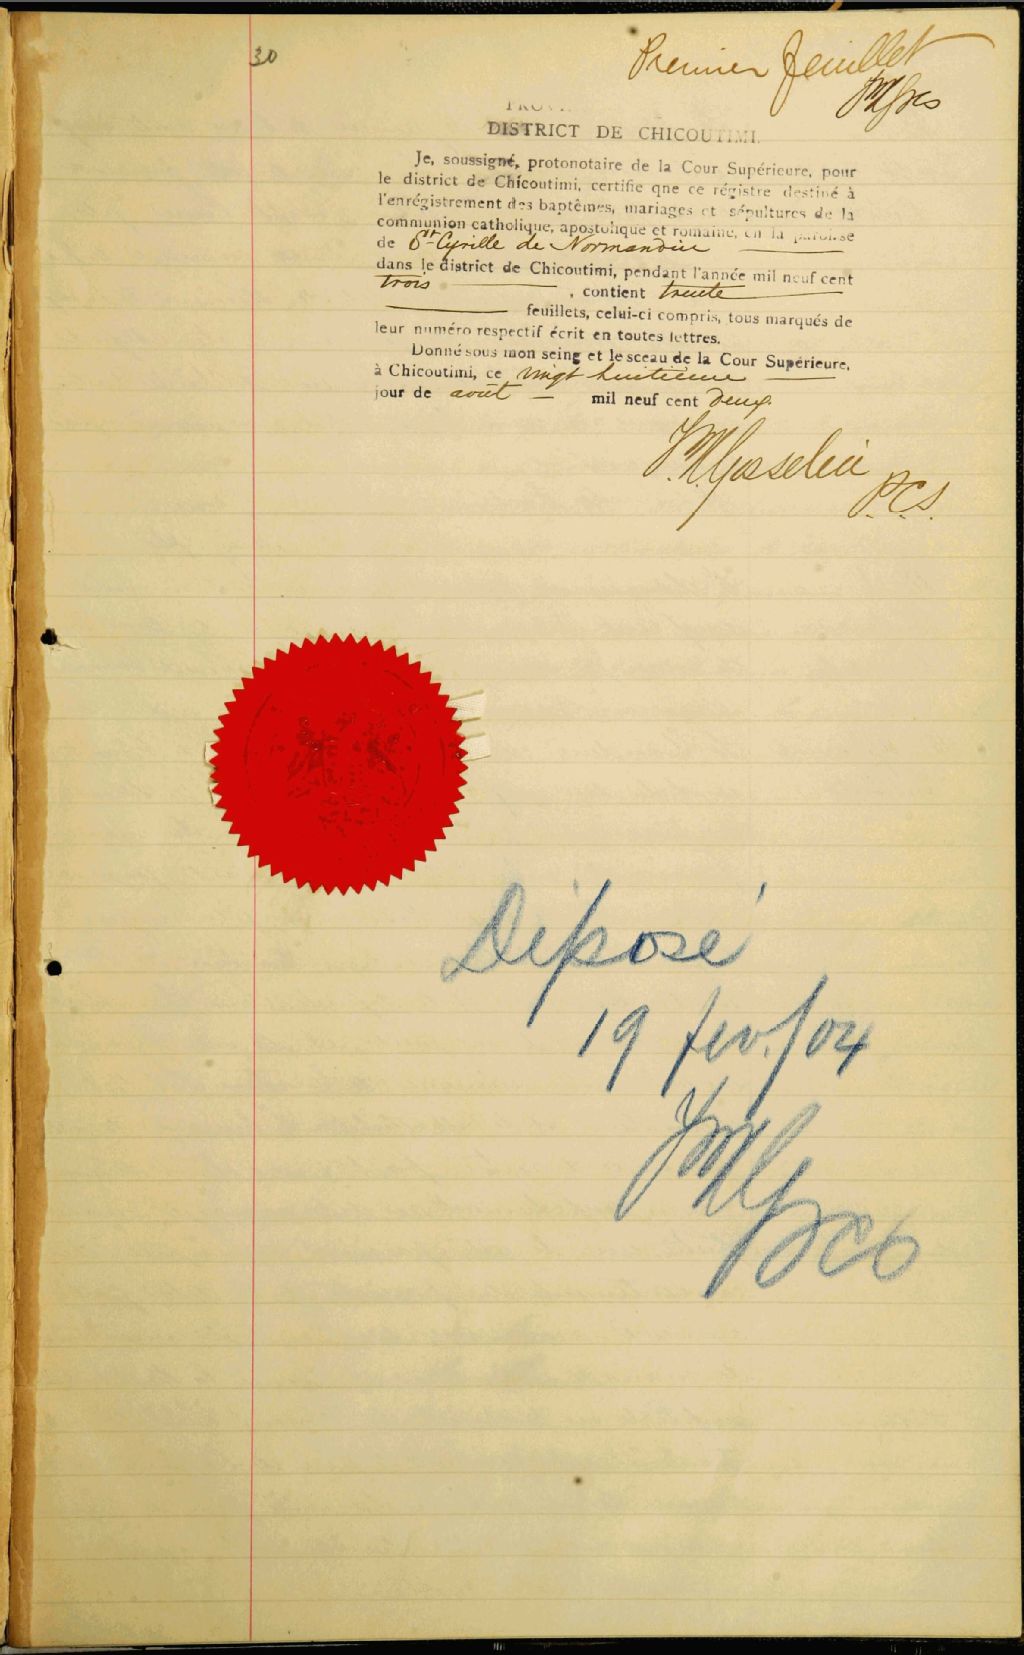 30
Premier feuillet
DISTRICT DE CHICOUTIMI.
Je, soussigné, protonotaire de la Cour Supérieure, pour
le district de Chicoutimi, certifie qne ce régistre destiné à
l'enrégistrement des baptêmes, mariages et sépultures de la
communion catholique, apostolique et romaine, en la paroisse
de St Cyrille de Normandin
dans le district de Chicoutimi, pendant l'année mil neuf cent
trois , contient trente
feuillets, celui-ci compris, tous marqués de
leur numéro respectif écrit en toutes lettres.
Donné sous mon seing et le sceau de la Cour Supérieure,
à Chicoutimi, ce vingt huitième
jour de août mil neuf cent deux.
Gosselin
P.C.S.
Déposé
19 fev./04